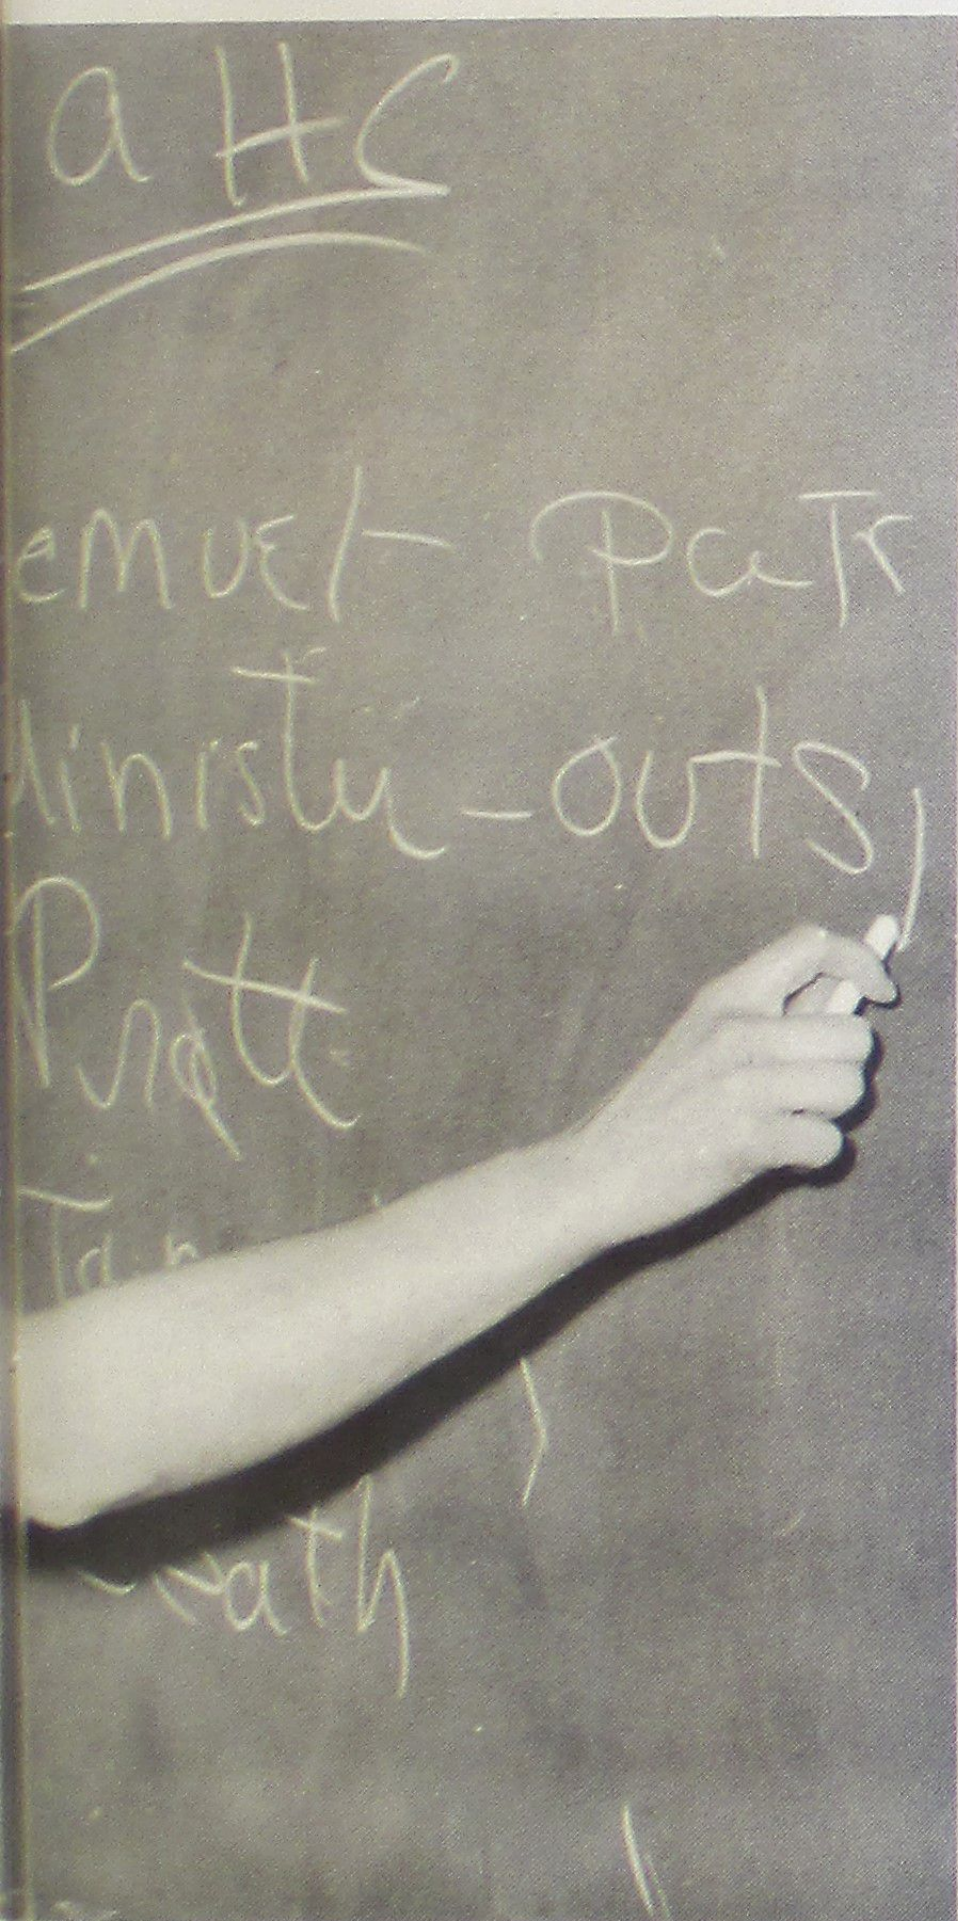 a HC
emuel- Patr
inistry-outs,
Pratt
Ta
ath